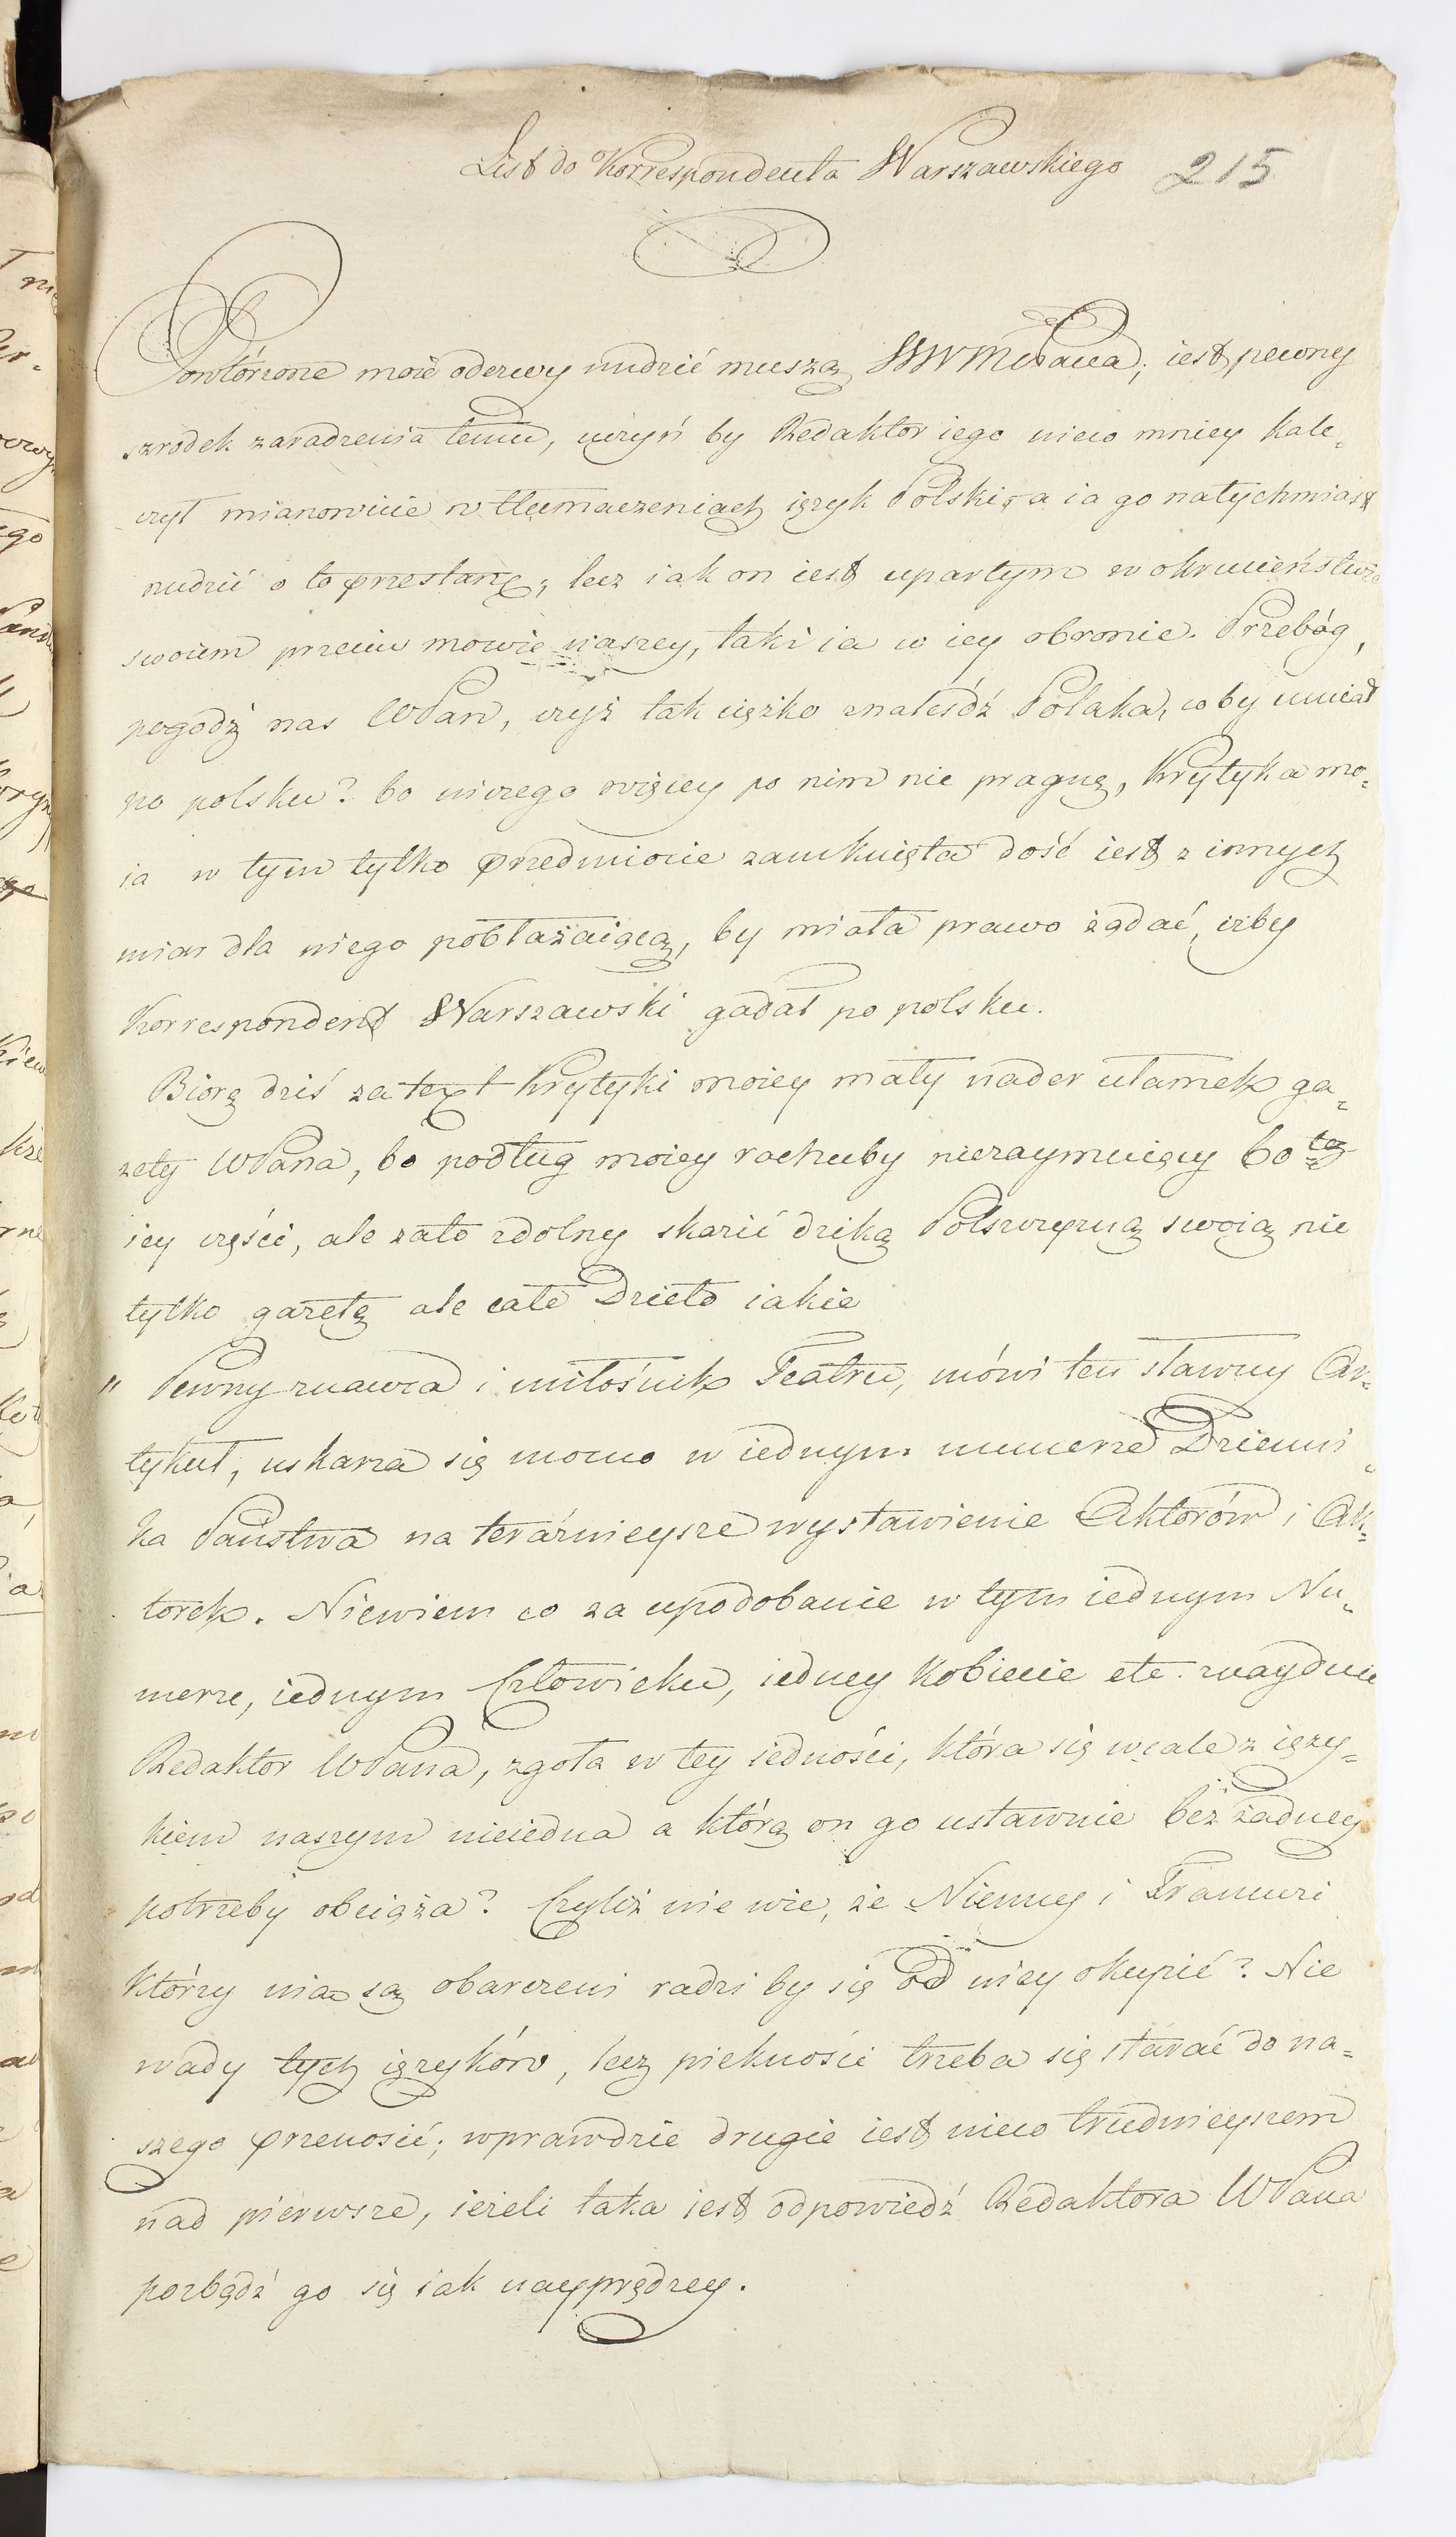 List do Korrespondenta Warszawskiego 215
Powtórzone moie odezwy nudzić muszą WWM Pana; iest pewny
szrodek zaradzenia temu, uczyń by Redaktor iego nieco mniey kale-
czył mianowicie w tłumaczeniach ięzyk Polski, a ia go natychmiast
nudzić o to przestanę; lecz iak on iest upartym w okrucieństwie
swoiem przeciw mowie naszey, taki ia w iey obronie. Przebóg,
pogodź nas WPan, czyż tak ciężko znaleśdź Polaka, coby umiał
po polsku? bo niczego więcey po nim nie pragnę, krytyka mo-
ia w tym tylko przedmiocie zamknięta dość iest z innych
miar dla niego pobłażaiącą, by miała prawo żądać, iżby
Korrespondent Warszawski gadał po polsku.
Biorę dziś za text krytyki moiey mały nader ułamek ga-
zety WPana, bo podług moiey rachuby niezaymuiący 60tą
iey części, ale zato zdolny skazić dziką Polszczyzną swoią nie
tylko gazetę ale całe Dzieło iakie
" Pewny znawca i miłośnik Teatru, mówi ten sławny Ar-
tykuł, uskarża się mocno w iednym numerze Dzienni-
ka Państwa na teraźnieysze wystawienie Aktorów i Ak-
torek. Niewiem co za upodobanie w tym iednym Nu-
merze, iednym Człowieku, iedney Kobiecie etc. znayduie
Redaktor WPana, zgoła w tey iedności, która się wcale z ięzy-
kiem naszym nieiedna a którą on go ustawnie bez żadney
potrzeby obciąża? Czyliż nie wie, że Niemcy i Francuzi
którzy nią są obarczeni radzi by się od niey okupić? Nie
wady tych ięzyków, lecz piekności trzeba się starać do na-
szego przenosić; wprawdzie drugie iest nieco trudnieyszem
nad pierwsze, ieżeli taka iest odpowiedź Redaktora WPana
pozbądź go się iak nayprędzey.